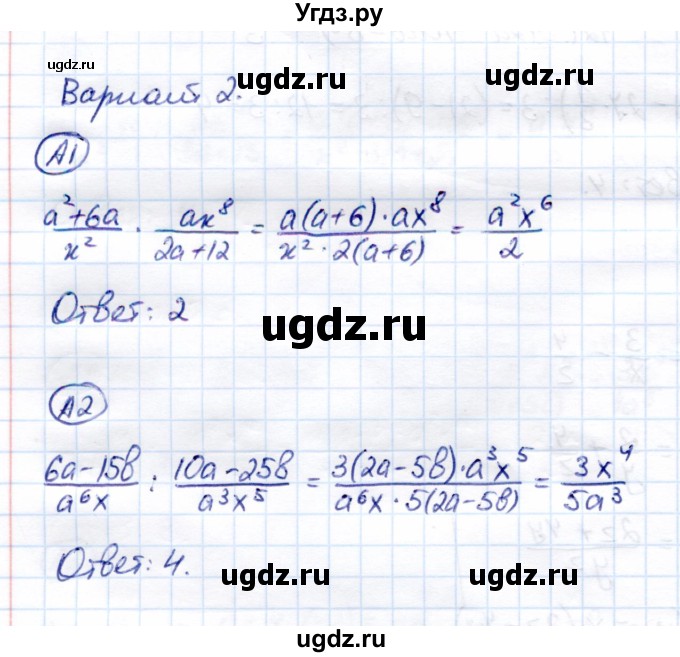 Угдз.ру
ugdz.ru
ugdz.ru
ugdz.ru
Вариант 2.
А1
(a²+6a)/x² · ax⁸/(2a+12) = (a(a+6)·ax⁸)/(x²·2(a+6)) = a²x⁶/2
Ответ: 2
ugdz.ru
А2
(6a-15b)/(a⁶x) : (10a-25b)/(a³x⁵) = (3(2a-5b)·a³x⁵)/(a⁶x·5(2a-5b)) = 3x⁴/5a³
Ответ: 4.
ugdz.ru
ugdz.ru
ugdz.ru